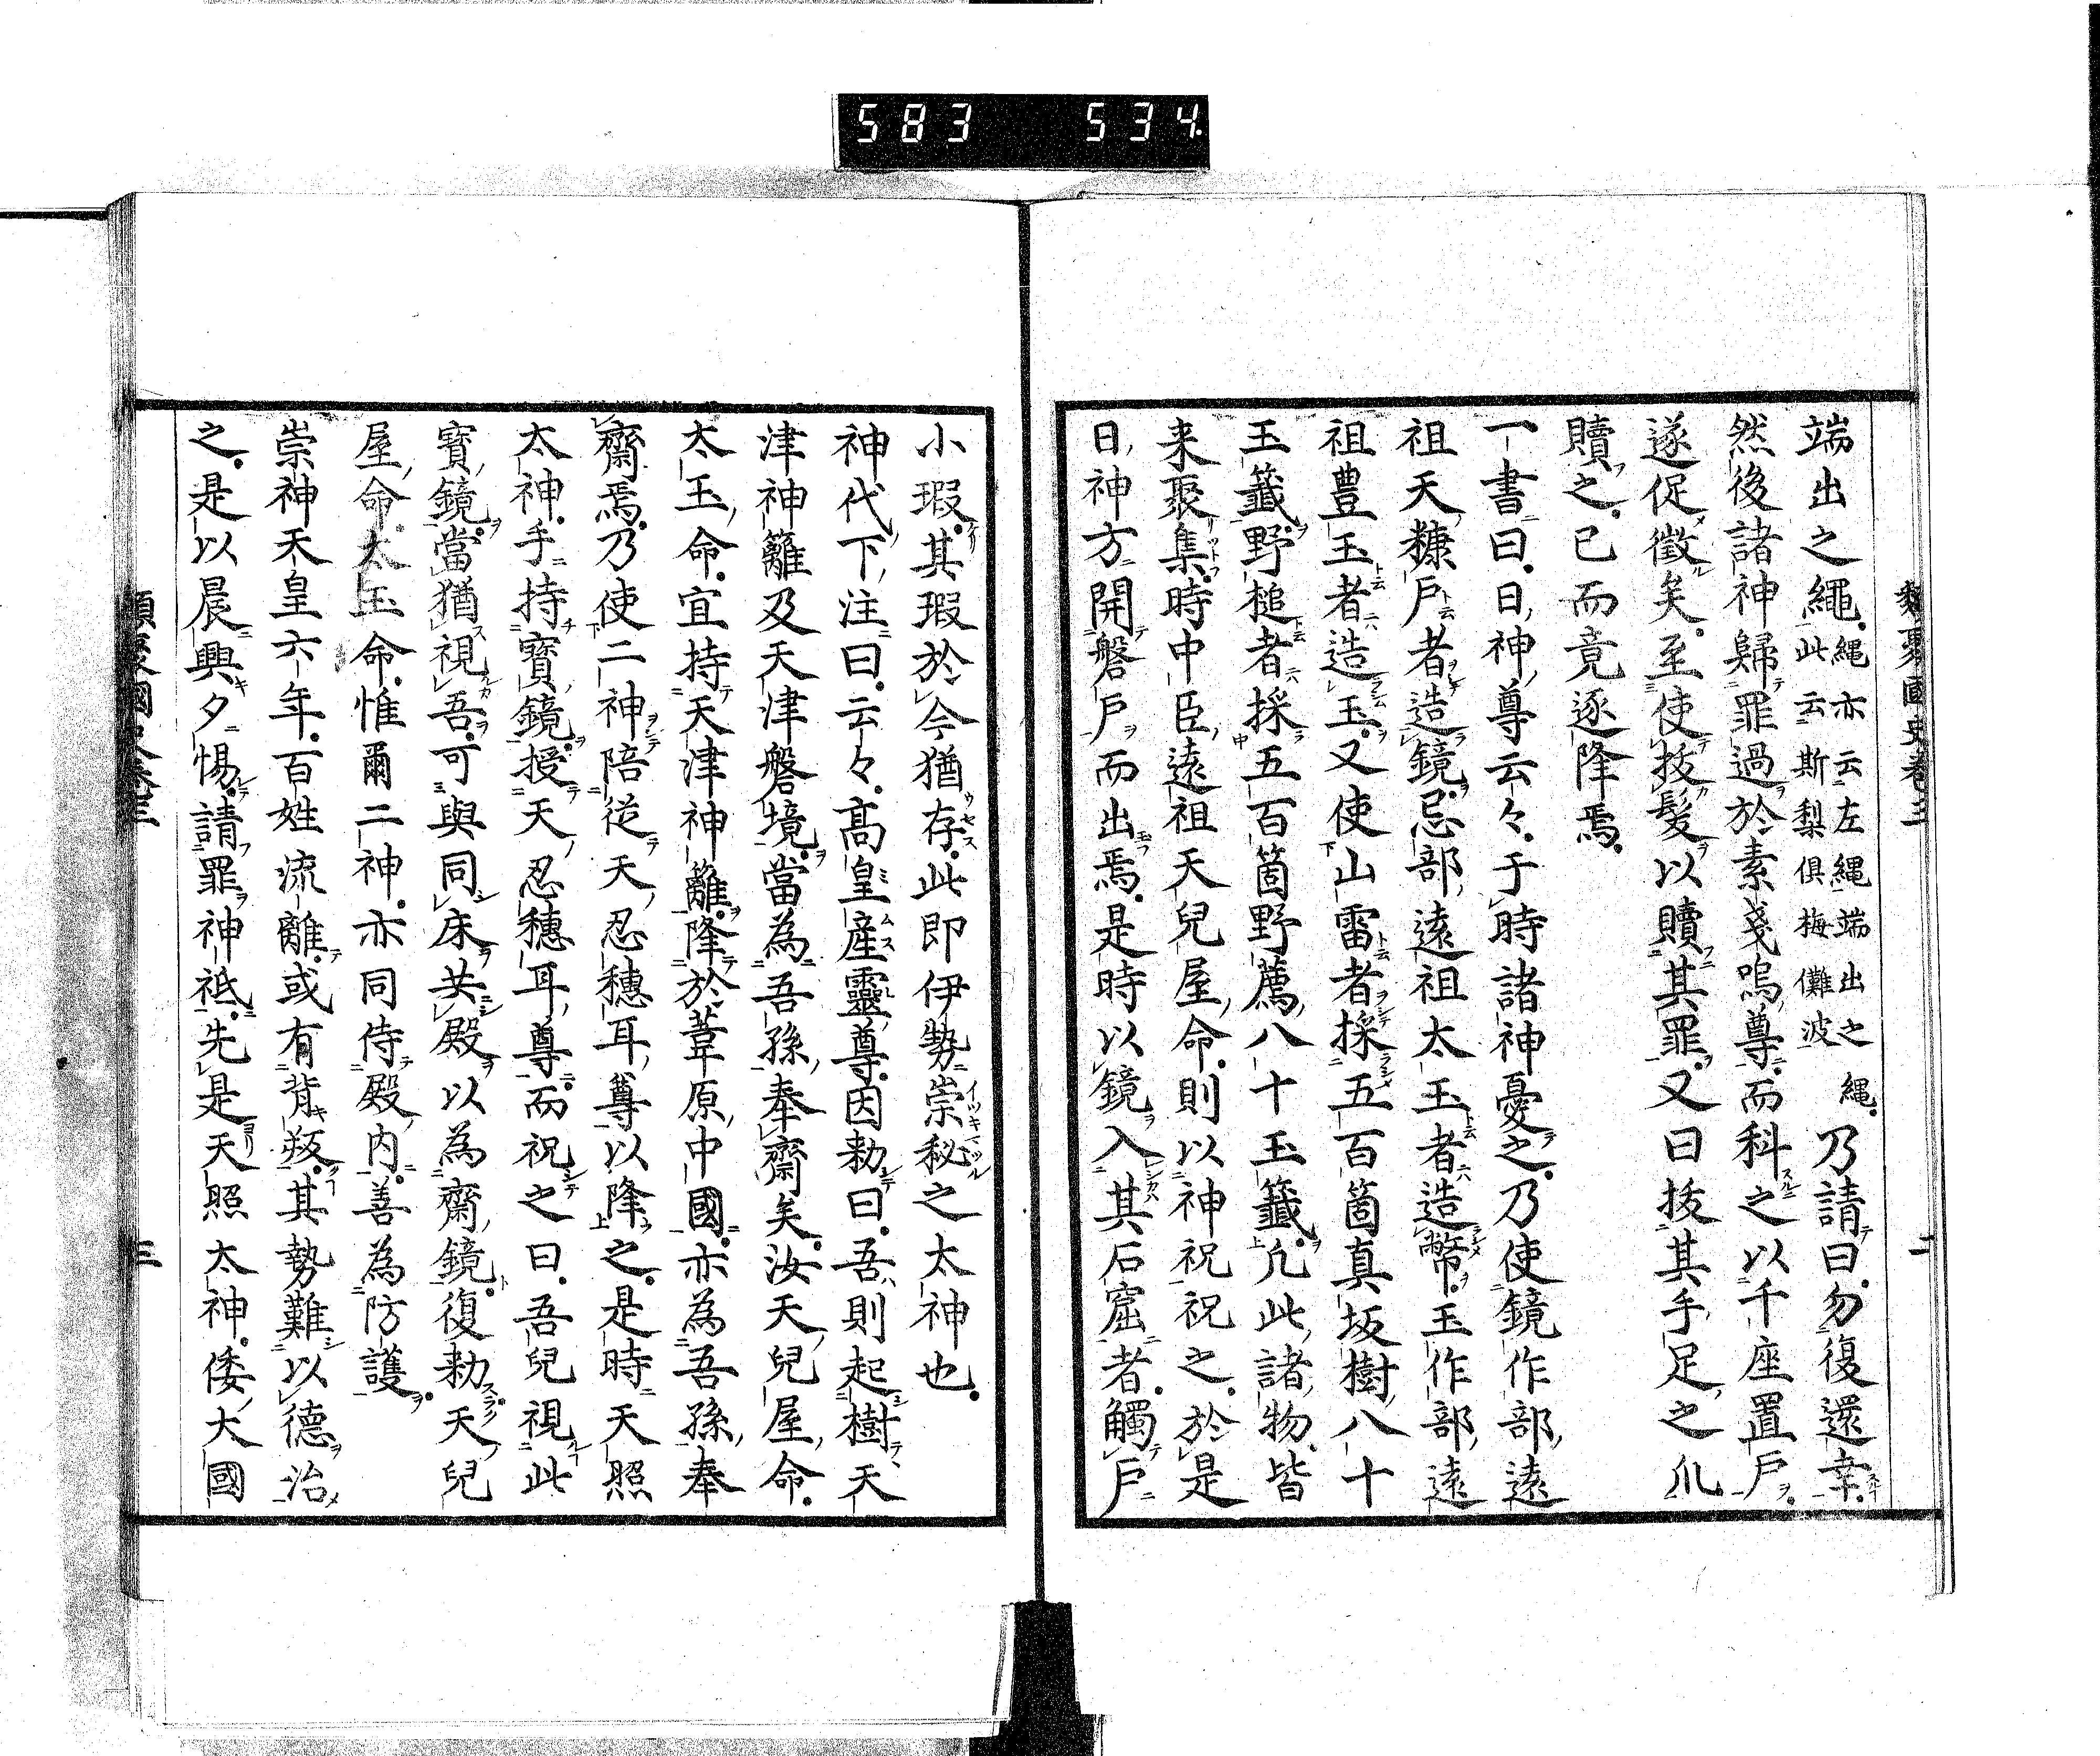 583 534
類聚國史卷三 二
端出之繩縄亦云左縄端出之縄此云斯梨倶梅儺波乃請曰勿復還幸
然後諸神歸罪過於素戔嗚尊而科之以千座置戸
遂促徴矣至使抜髪以贖其罪又曰抜其手足之爪
贖之已而竟逐降焉
一書曰日神尊云々于時諸神憂之乃使鏡作部遠
祖天糠戸者造鏡忌部遠祖太玉者造幣玉作部遠
祖豊玉者造玉又使山雷者採五百箇真坂樹八十
玉籤野槌者採五百箇野薦八十玉籤凢此諸物皆
来聚集時中臣遠祖天兒屋命則以神祝祝之於是
日神方開磐戸而出焉是時以鏡入其石窟者觸戸
小瑕其瑕於今猶存此即伊勢崇秘之太神也
神代下注曰云々高皇産靈尊因勅曰吾則起樹天
津神籬及天津磐境當為吾孫奉齋矣汝天兒屋命
太玉命宜持天津神籬降於葦原中國亦為吾孫奉
齋焉乃使二神陪従天忍穗耳尊以降之是時天照
太神手持寳鏡授天忍穗耳尊而祝之曰吾兒視此
寳鏡當猶視吾可與同床共殿以為齋鏡復勅天兒
屋命太玉命惟爾二神亦同侍殿内善為防護
崇神天皇六年百姓流離或有背叛其勢難以德治
之是以晨興夕惕請罪神祇先是天照太神倭大國
類聚國史卷三 三